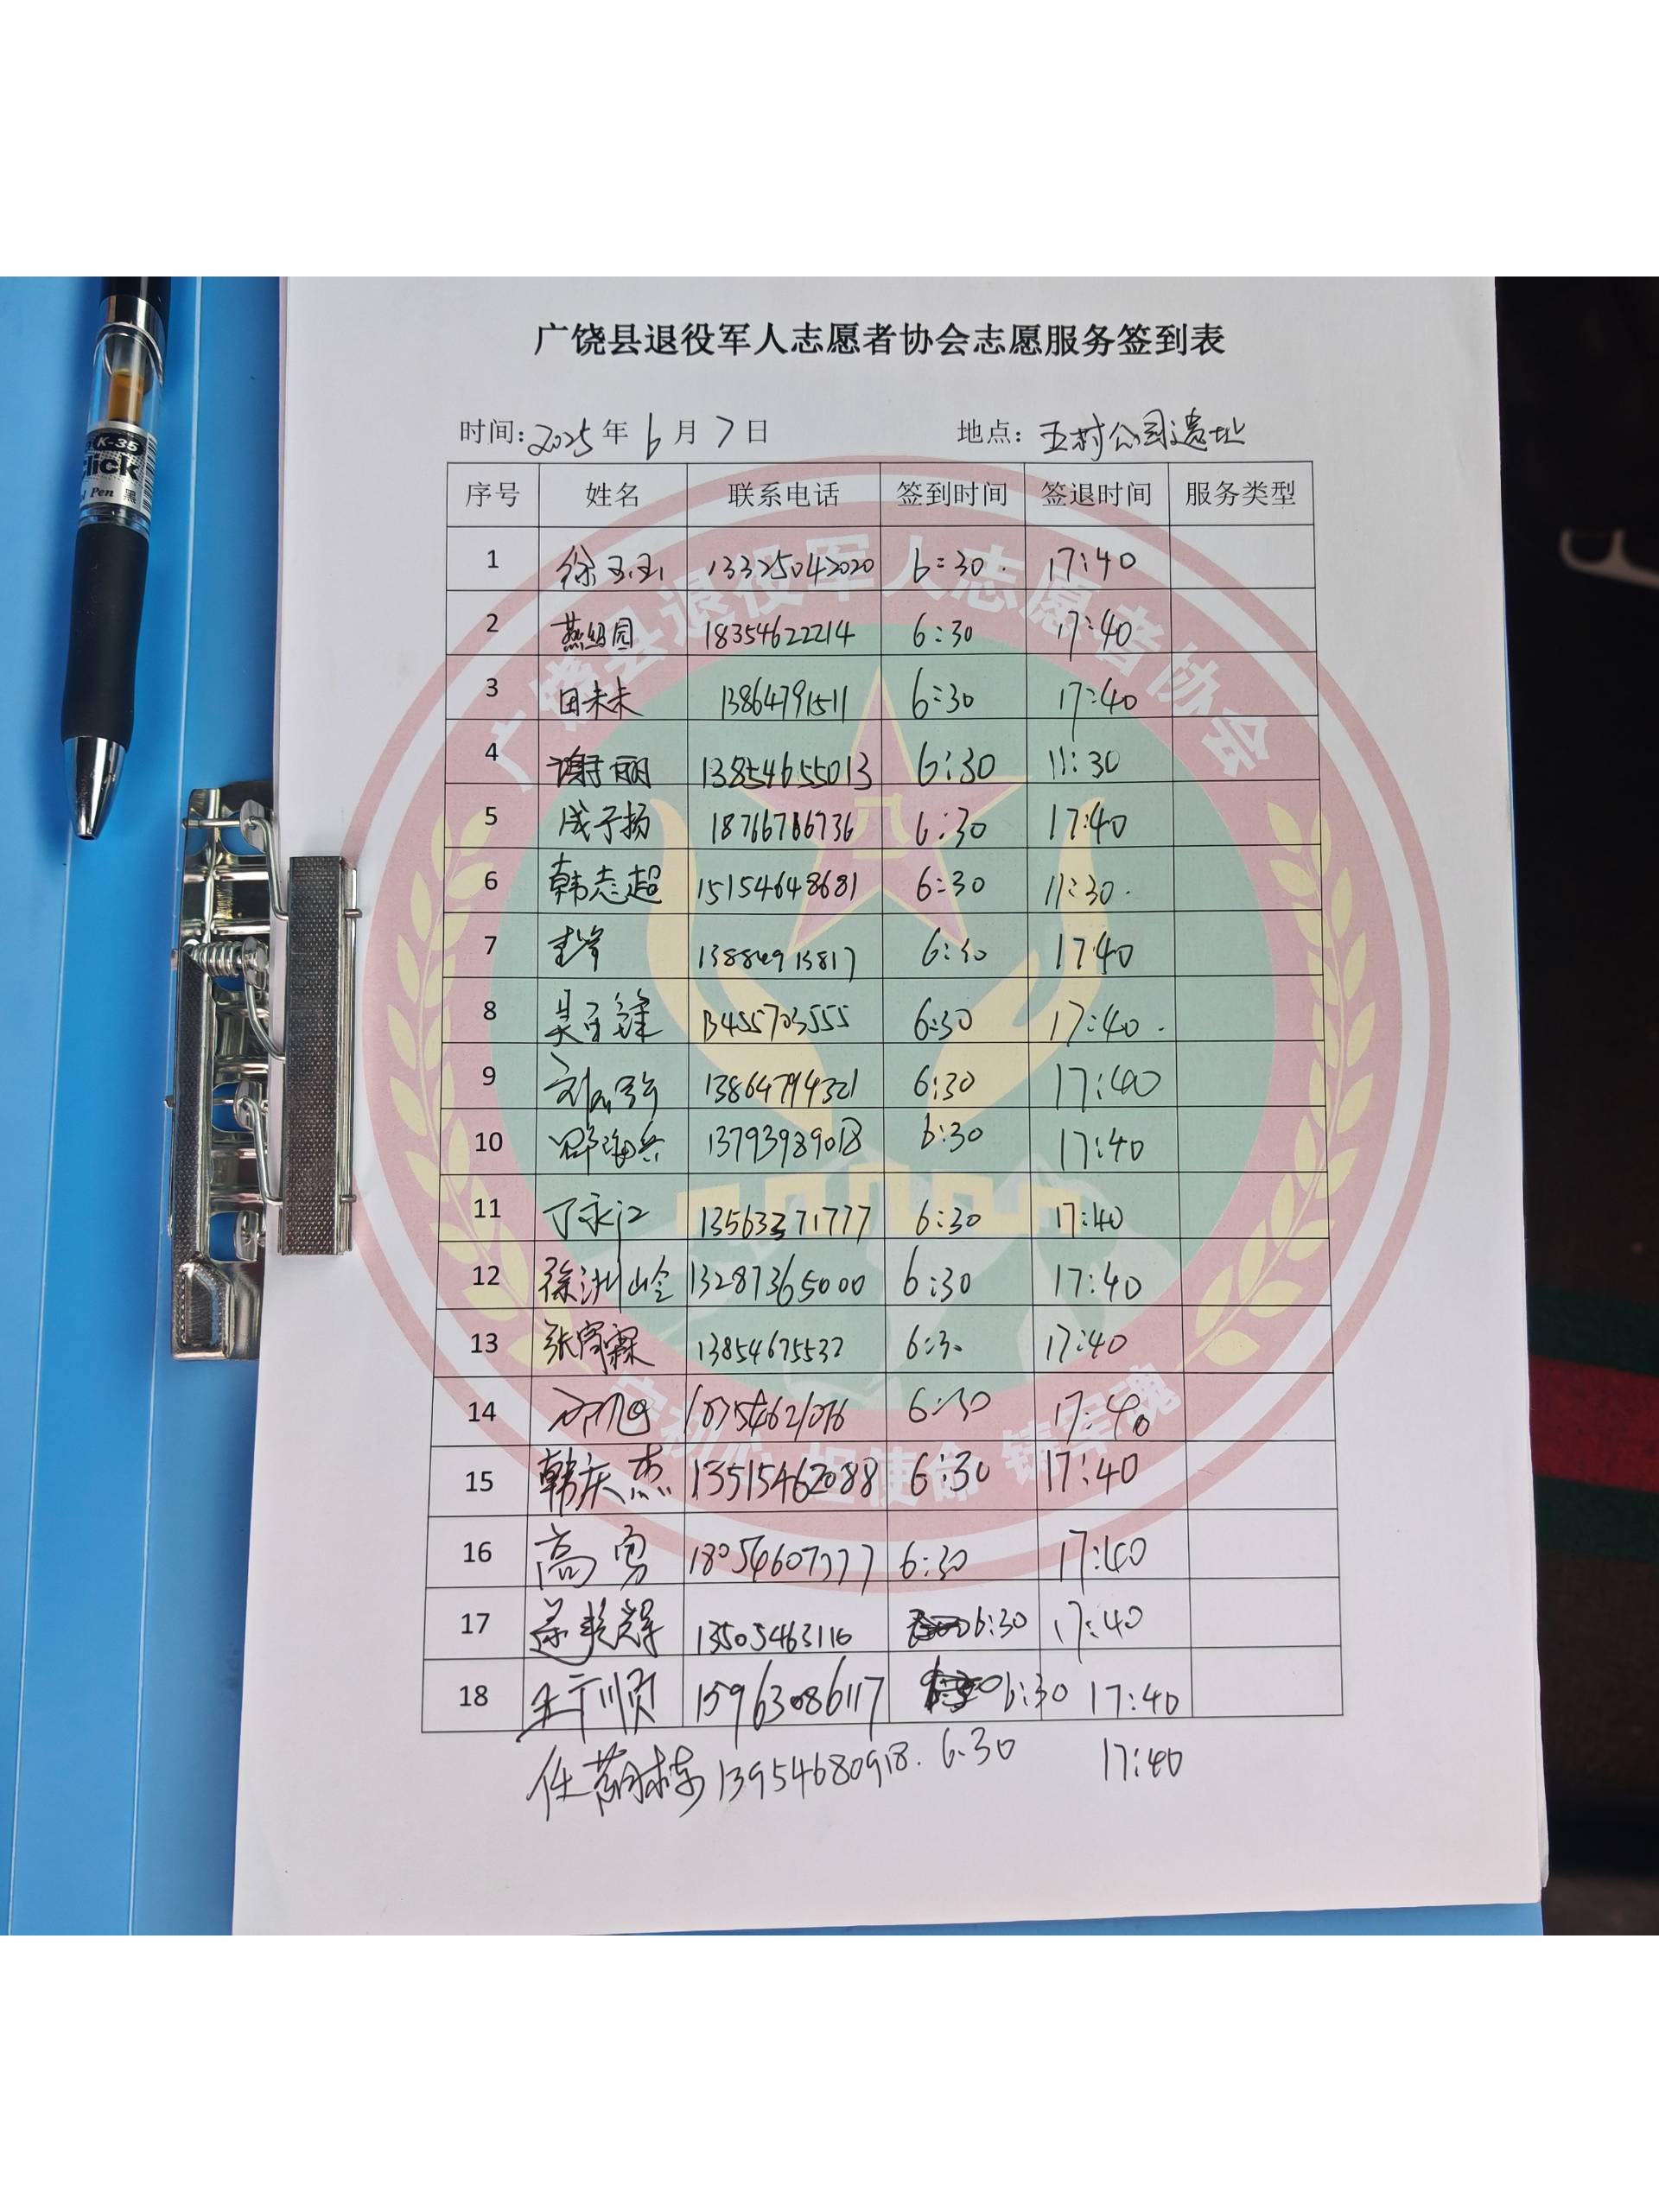 广饶县退役军人志愿者协会志愿服务签到表
时间: 2025 年 6 月 7 日 地点: 五村公园遗址
序号 姓名 联系电话 签到时间 签退时间 服务类型
1 徐玉玉 13325042020 6:30 17:40
2 燕组园 18354622214 6:30 17:40
3 田未未 13864791511 6:30 17:40
4 谢丽 13854655013 6:30 11:30
5 成子扬 18766786736 6:30 17:40
6 韩志超 15154648681 6:30 11:30
7 6:30 1740
8 13455703555 6:30 17:40
9 6:30 17:40
10 13793989018 6:30 17:40
11 丁永江 13563371777 6:30 17:40
12 13287365000 6:30 17:40
13 张富霖 13854675532 6:30 17:40
14 6:30 17:40
15 韩庆杰 13515462088 6:30 17:40
16 高勇 18054607777 6:30 17:40
17 13505463116 6:30 17:40
18 15963086117 6:30 17:40
任 13954680918. 6:30 17:40
广饶县退役军人志愿者协会
八一
K-35
Click
Pen 黑